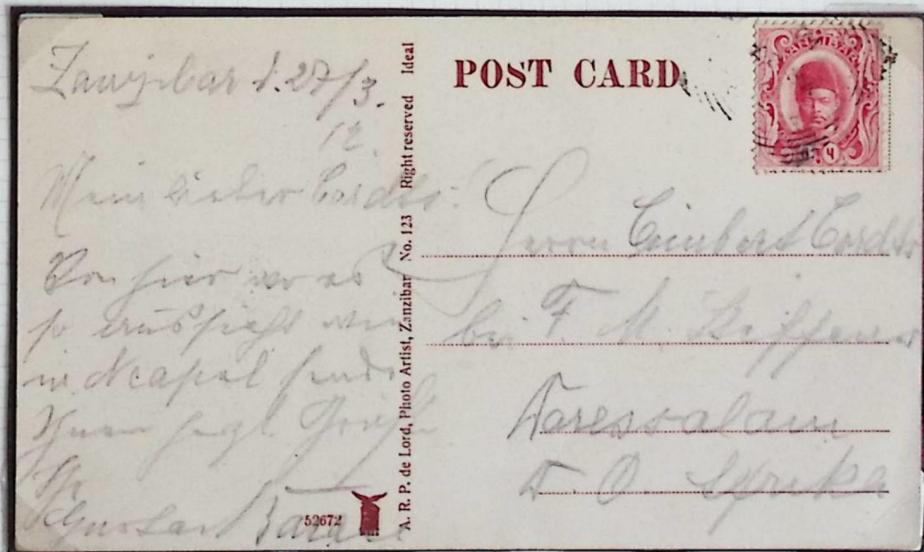 Zanzibar d. 27/3.
12.
Mein lieber Cordts!
Von hier wo es
so aussieht wie
in Neapel sendet
Ihnen herzl. Grüße
Ihr
Gustav
52672
A. R. P. de Lord, Photo Artist, Zanzibar No. 123 Right reserved Ideal
POST CARD
ZANZIBAR
Herrn Cordts
bei F. M. Steffens
Daressalam
D. O. Afrika